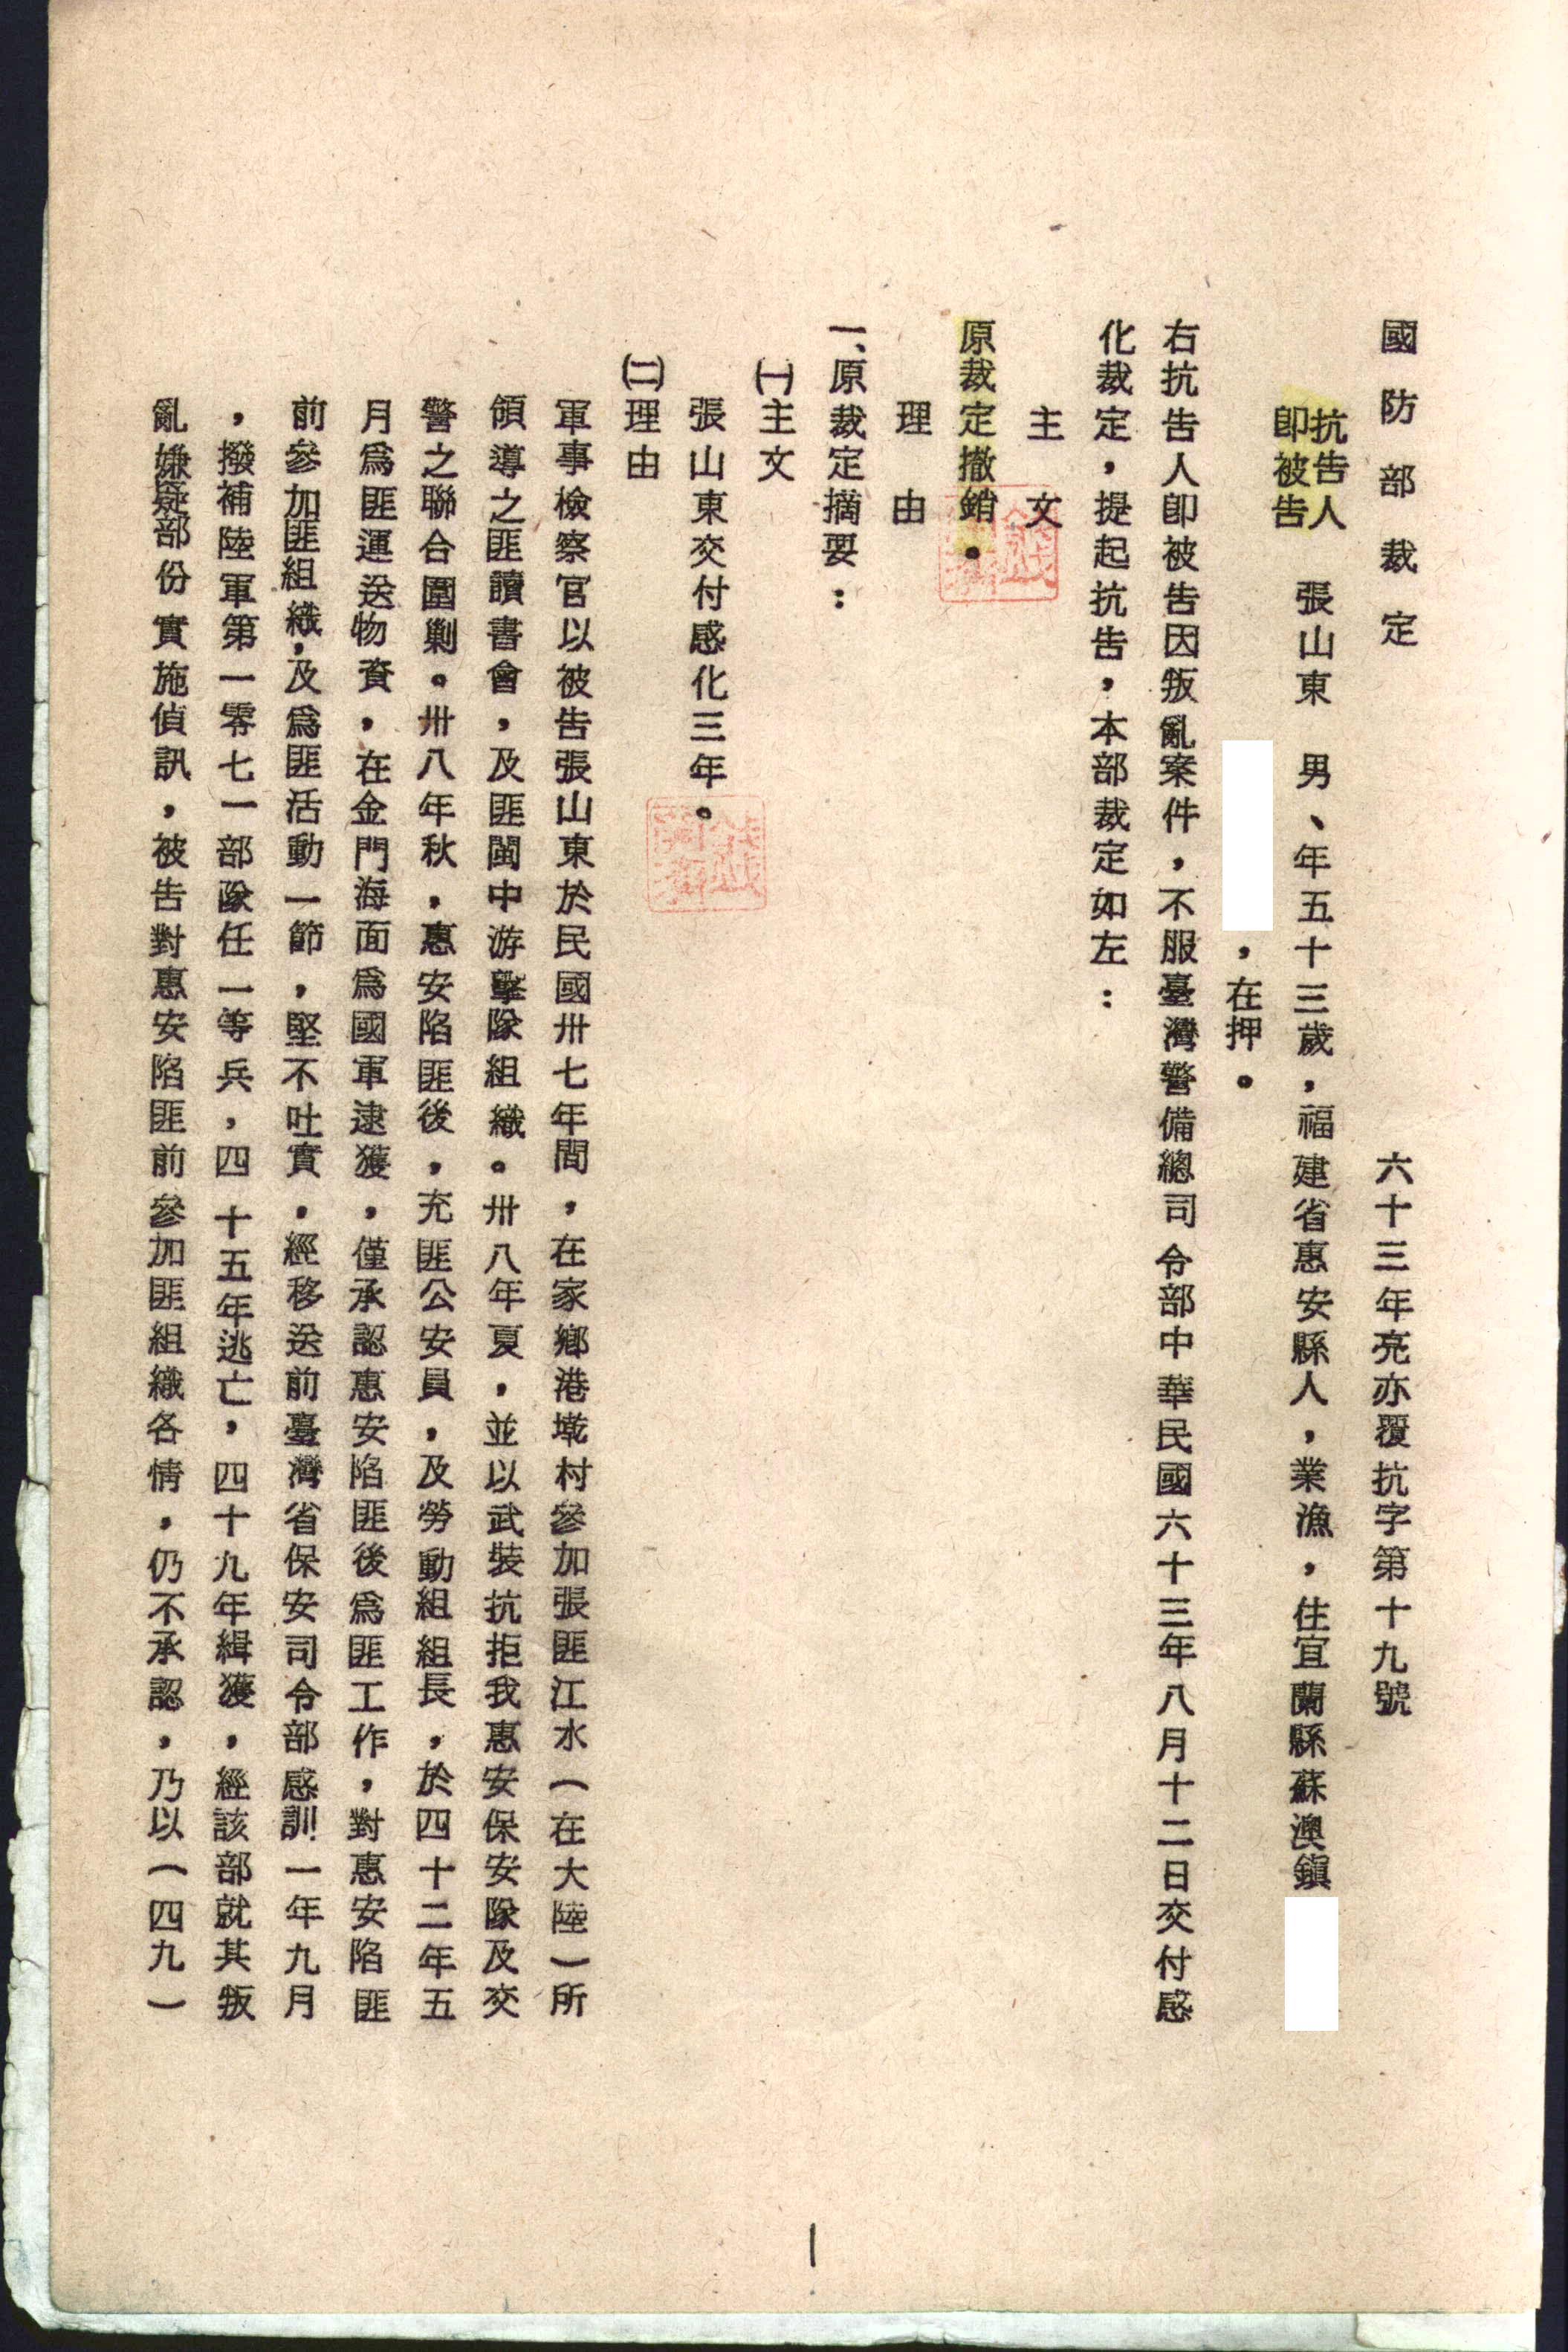 國防部裁定　六十三年亮亦覆抗字第十九號
抗告人
即被告　張山東　男、年五十三歲，福建省惠安縣人，業漁，住宜蘭縣蘇澳鎭
，在押。
右抗告人卽被告因叛亂案件，不服臺灣警備總司令部中華民國六十三年八月十二日交付感
化裁定，提起抗告，本部裁定如左：
主文
原裁定撤銷。
理由
一、原裁定摘要：
㈠主文
張山東交付感化三年。
㈡理由
軍事檢察官以被告張山東於民國卅七年間，在家鄉港墘村參加張匪江水（在大陸）所
領導之匪讀書會，及匪閩中游擊隊組織。卅八年夏，並以武裝抗拒我惠安保安隊及交
警之聯合圍剿。卅八年秋，惠安陷匪後，充匪公安員，及勞動組組長，於四十二年五
月爲匪運送物資，在金門海面爲國軍逮獲，僅承認惠安陷匪後爲匪工作，對惠安陷匪
前參加匪組織，及爲匪活動一節，堅不吐實，經移送前臺灣省保安司令部感訓一年九月
，撥補陸軍第一零七一部隊任一等兵，四十五年逃亡，四十九年緝獲，經該部就其叛
亂嫌疑部份實施偵訊，被告對惠安陷匪前參加匪組織各情，仍不承認，乃以（四九）